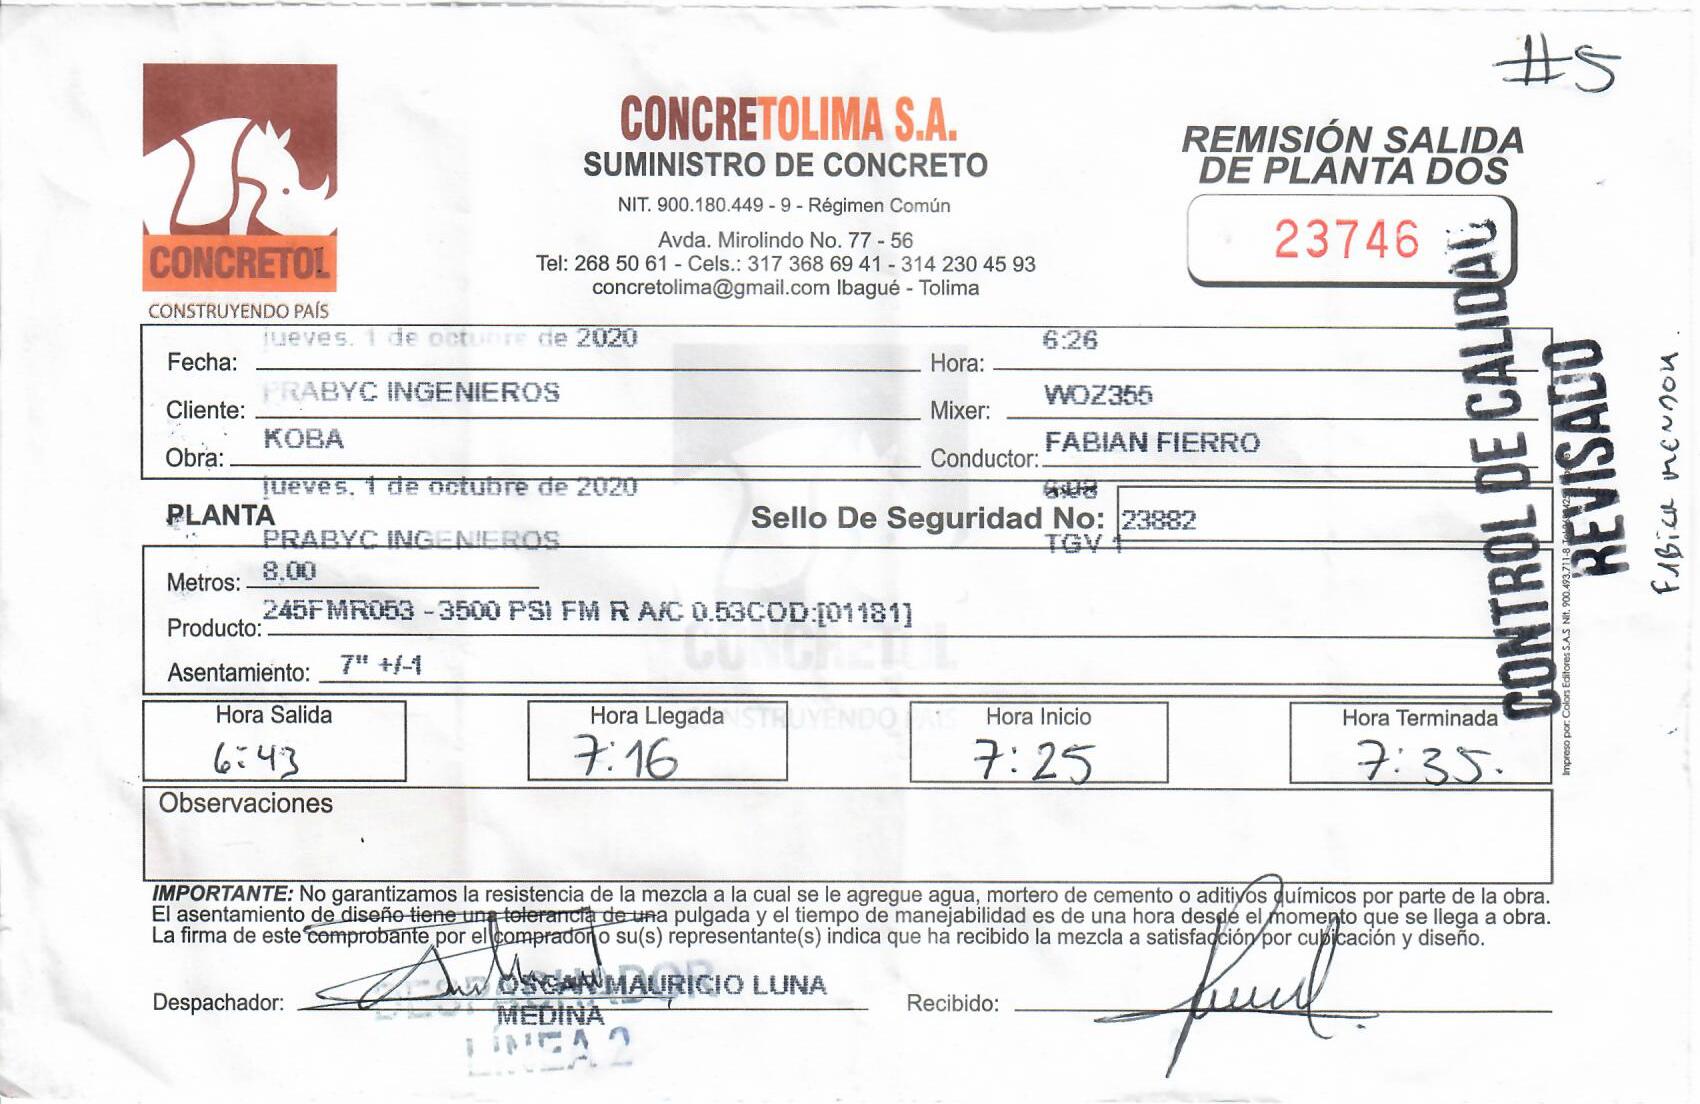 #5
CONCRETOL
CONSTRUYENDO PAÍS
CONCRETOLIMA S.A.
SUMINISTRO DE CONCRETO
NIT. 900.180.449 - 9 - Régimen Común
Avda. Mirolindo No. 77 - 56
Tel: 268 50 61 - Cels.: 317 368 69 41 - 314 230 45 93
concretolima@gmail.com Ibagué - Tolima
REMISIÓN SALIDA
DE PLANTA DOS
23746
Fecha: jueves, 1 de octubre de 2020 Hora: 6:26
Cliente: PRABYC INGENIEROS Mixer: WOZ355
Obra: KOBA Conductor: FABIAN FIERRO
jueves, 1 de octubre de 2020
PLANTA Sello De Seguridad No: 23882
PRABYC INGENIEROS TGV 1
Metros: 8,00
Producto: 245FMR053 - 3500 PSI FM R A/C 0.53COD:[01181]
Asentamiento: 7" +/-1
CONCRETOL
CONSTRUYENDO PAIS
Hora Salida Hora Llegada Hora Inicio Hora Terminada
6:43 7:16 7:25 7:35.
Observaciones
IMPORTANTE: No garantizamos la resistencia de la mezcla a la cual se le agregue agua, mortero de cemento o aditivos químicos por parte de la obra.
El asentamiento de diseño tiene una tolerancia de una pulgada y el tiempo de manejabilidad es de una hora desde el momento que se llega a obra.
La firma de este comprobante por el comprador o su(s) representante(s) indica que ha recibido la mezcla a satisfacción por cubicación y diseño.
Despachador: OSCAR MAURICIO LUNA Recibido:
MEDINA
DESPACHADOR
LÍNEA 2
CONTROL DE CALIDAD
REVISADO
Impreso por: Colors Editores S.A.S Nit. 900.493.711-8